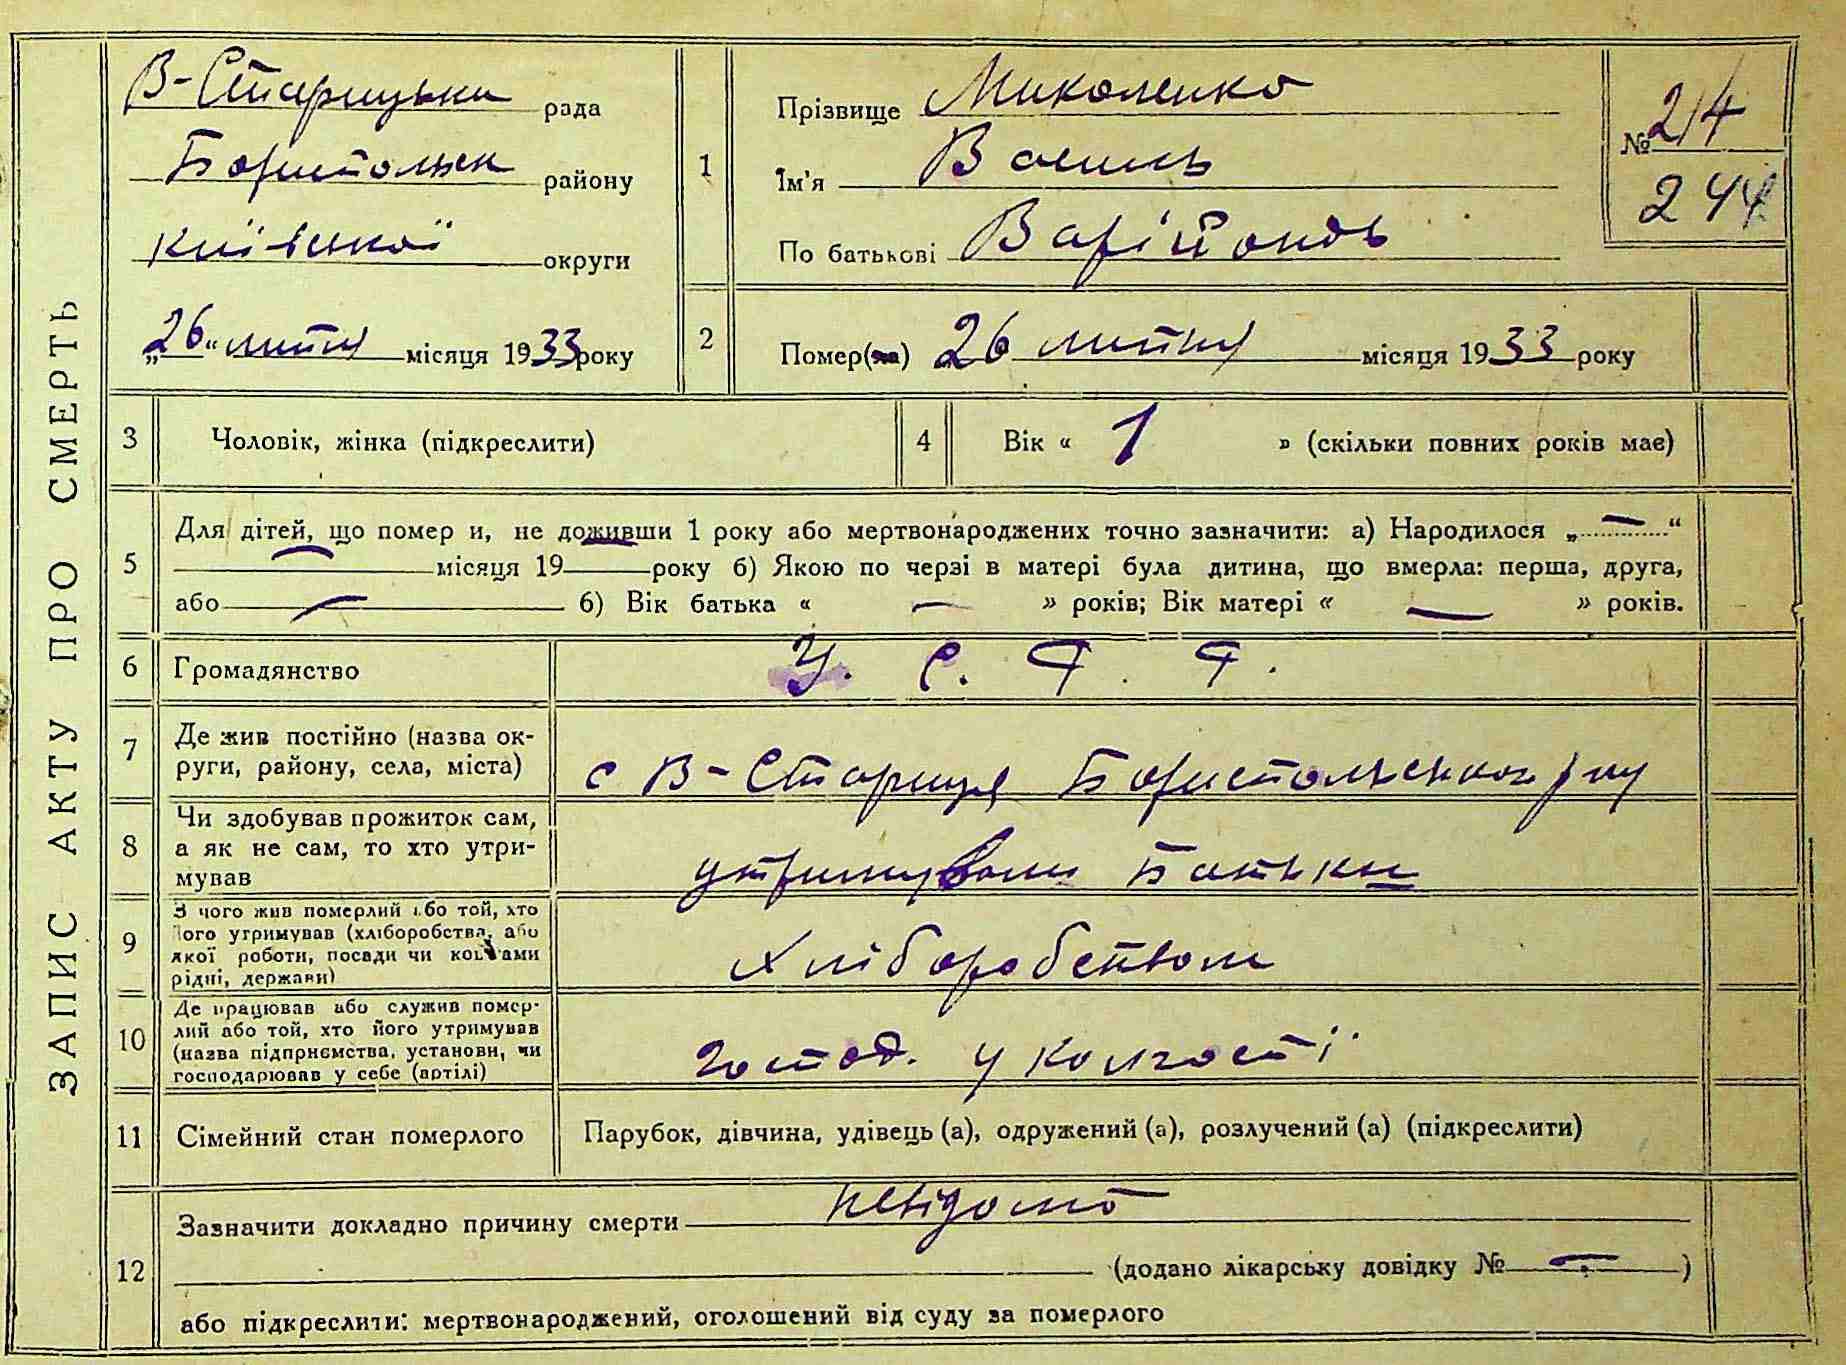 ЗАПИС АКТУ ПРО СМЕРТЬ
В-Старицька рада
Бориспольск району
Київської округи
„26“ липня місяця 1933 року
1
Прізвище Миколенко
Ім'я Василь
По батькові
№ 214
244
2
Помер(ла) „26 липня місяця 1933 року
3
Чоловік, жінка (підкреслити)
4
Вік « 1 » (скільки повних років має)
5
Для дітей, що помер и, не доживши 1 року або мертвонароджених точно зазначити: а) Народилося „ — “
— місяця 19 року б) Якою по черзі в матері була дитина, що вмерла: перша, друга,
або — б) Вік батька « — » років; Вік матері « — » років.
6
Громадянство
У. С. Р. Р.
7
Де жив постійно (назва ок-
руги, району, села, міста)
с В-Стариця Бориспольського р-ну
8
Чи здобував прожиток сам,
а як не сам, то хто утри-
мував
утримували Батьки
9
З чого жив померлий або той, хто
його утримував (хліборобства, або
якої роботи, посади чи коштами
рідні, держави)
Хліборобством
10
Де працював або служив помер-
лий або той, хто його утримував
(назва підприємства, установи, чи
господарював у себе (артілі)
господ. у колгоспі
11
Сімейний стан померлого
Парубок, дівчина, удівець (а), одружений (а), розлучений (а) (підкреслити)
12
Зазначити докладно причину смерти невідомо
(додано лікарську довідку № — )
або підкреслити: мертвонароджений, оголошений від суду за померлого